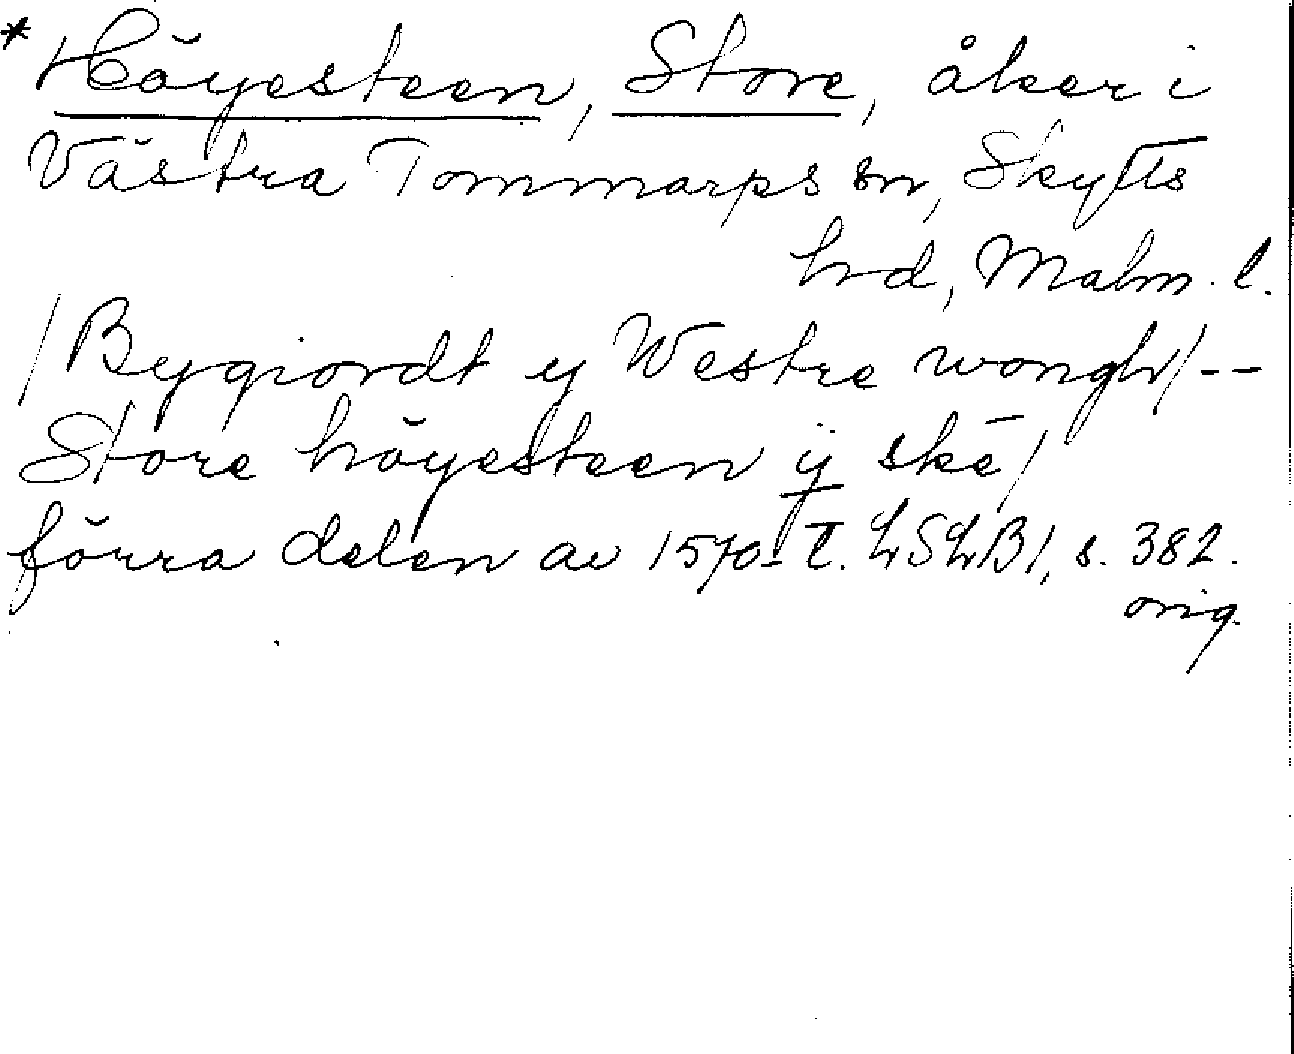 * Höyesteen, Store, åker i
Västra Tommarps sn, Skytts
hd, Malm. l.
/Bygiordt y Westre wongh/--
Store höyesteen ÿ skē/
förra delen av 1570-t. LSLB1, s. 382.
orig.